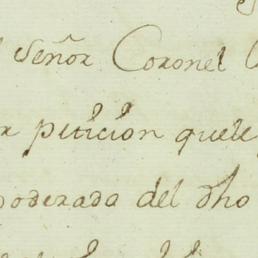 Señor Coronel
petición quele
poderada del dho